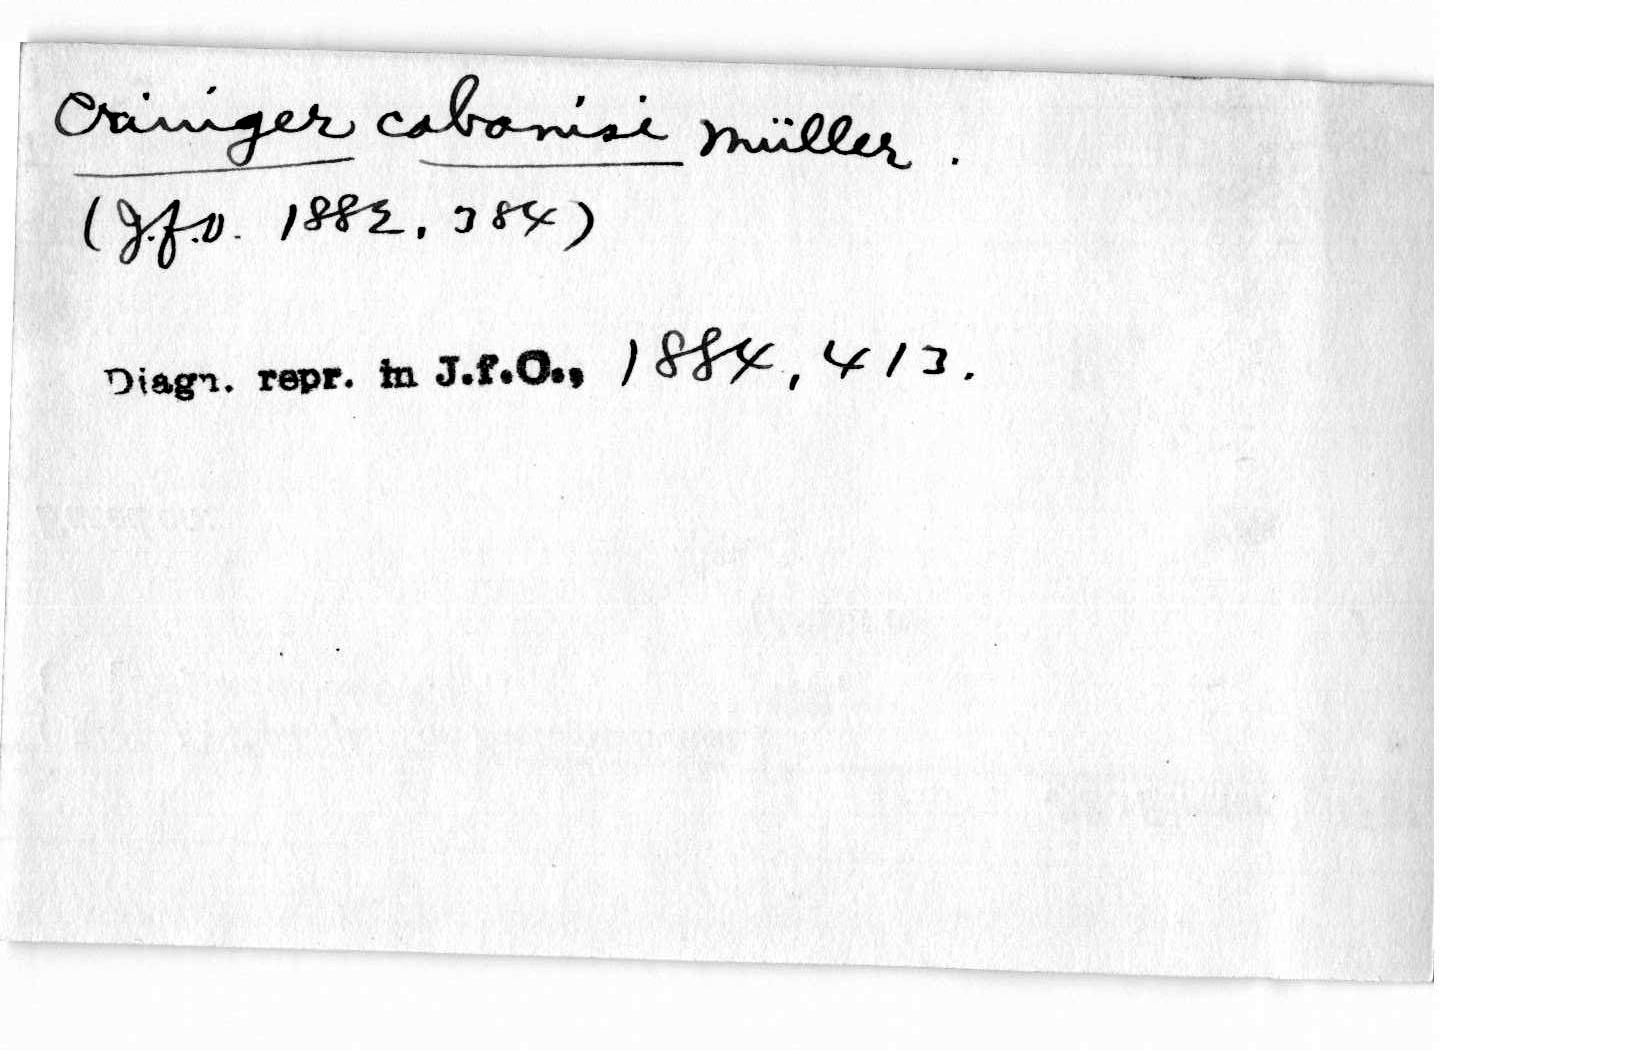 Criniger cabanisi Müller.
(J.f.O. 1882, 384)
Diagn. repr. in J.f.O., 1884, 413.